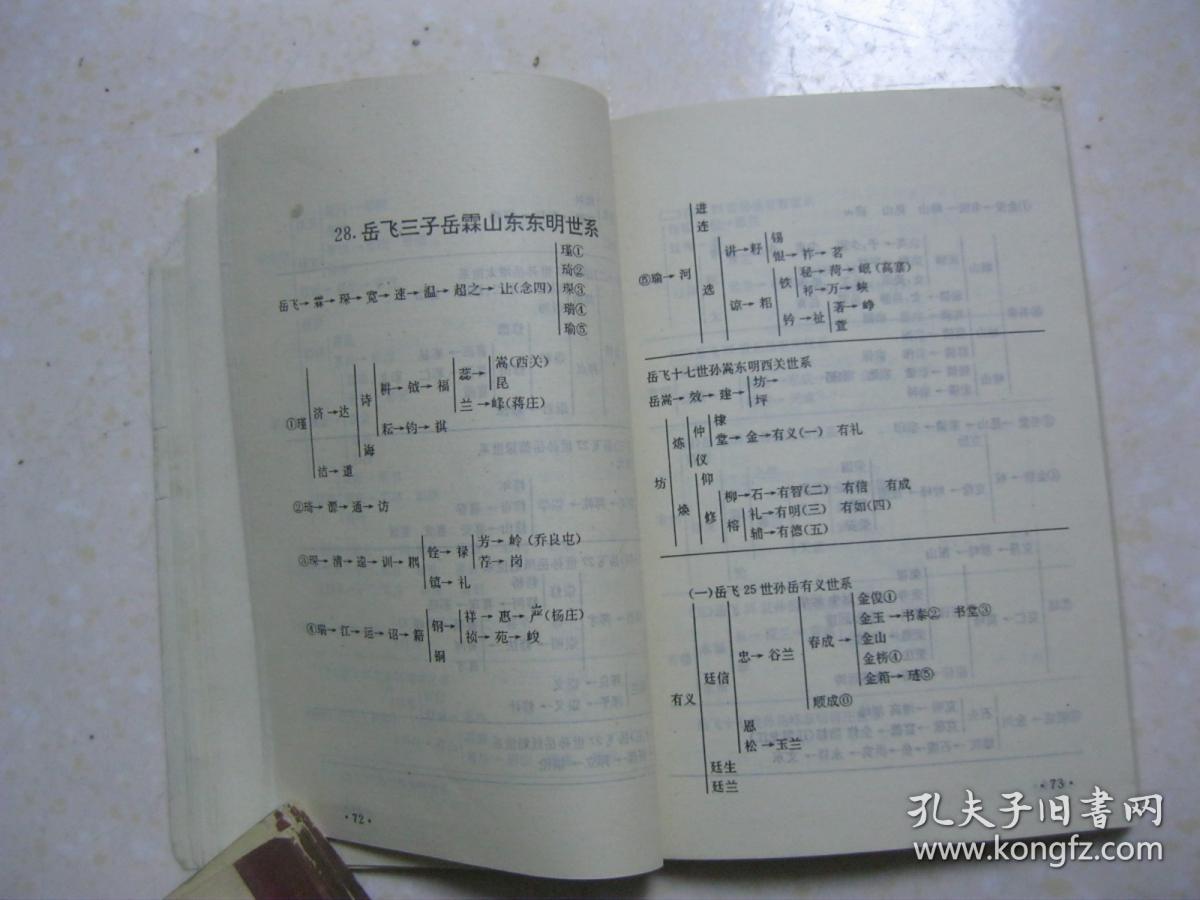 28.岳飞三子岳霖山东东明世系
瑾①
琦②
岳飞→霖→琛→宽→速→温→超之→让(念四) 琛③
瑞④
瑜⑤
嵩(西关)
蕊→
耕→钺→福 昆
诗 兰→峰(蒋庄)
济→达
①瑾 耘→钧→祺
海
洁→道
②琦→郡→通→访
芳→岭(乔良屯)
铨→禄
③琛→清→远→训→耦 荐→岗
镇→礼
祥→惠→严(杨庄)
钢→
④瑞→江→运→诏→籍 祯→苑→峻
铜
·72·
进
连
锡
讲→籽
银→祚→茗
⑤瑜→河
选 秘→菏→岷(高寨)
铁
祁→万→峡
谅→耜
著→峥
钤→祉
萱
岳飞十七世孙嵩东明西关世系
坊→
岳嵩→效→建→
坪
棣
仲
炼 堂→金→有义(一) 有礼
仪
坊 仰
柳→石→有智(二) 有信 有成
焕
修 礼→有明(三) 有如(四)
榕
辅→有德(五)
(一)岳飞25世孙岳有义世系
金俊①
金玉→书泰② 书堂③
春成→ 金山
忠→谷兰 金榜④
廷信 金箱→琏⑤
有义 顺成⑥
恩
松→玉兰
廷生
廷兰
·73·
孔夫子旧书网
www.kongfz.com